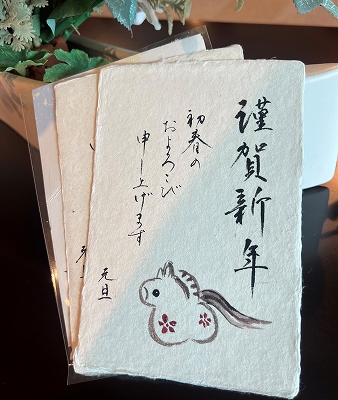 謹賀新年
初春の
およろこび
申し上げます
元旦